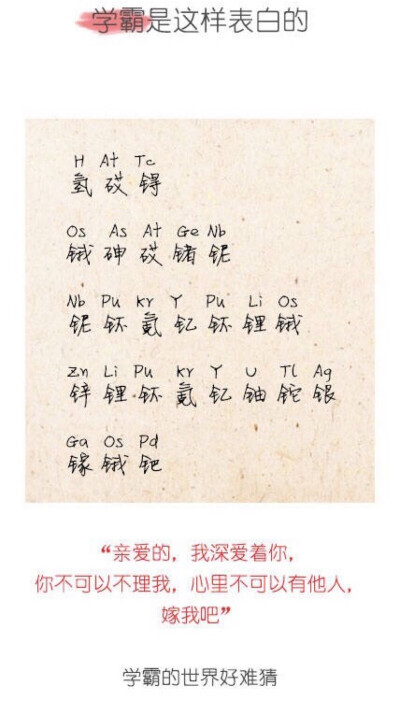 学霸是这样表白的
H At Tc
氢 砹 锝
Os As At Ge Nb
锇 砷 砹 锗 铌
Nb Pu Kr Y Pu Li Os
铌 钚 氪 钇 钚 锂 锇
Zn Li Pu Kr Y U Tl Ag
锌 锂 钚 氪 钇 铀 铊 银
Ga Os Pd
镓 锇 钯
“亲爱的，我深爱着你，
你不可以不理我，心里不可以有他人，
嫁我吧”
学霸的世界好难猜